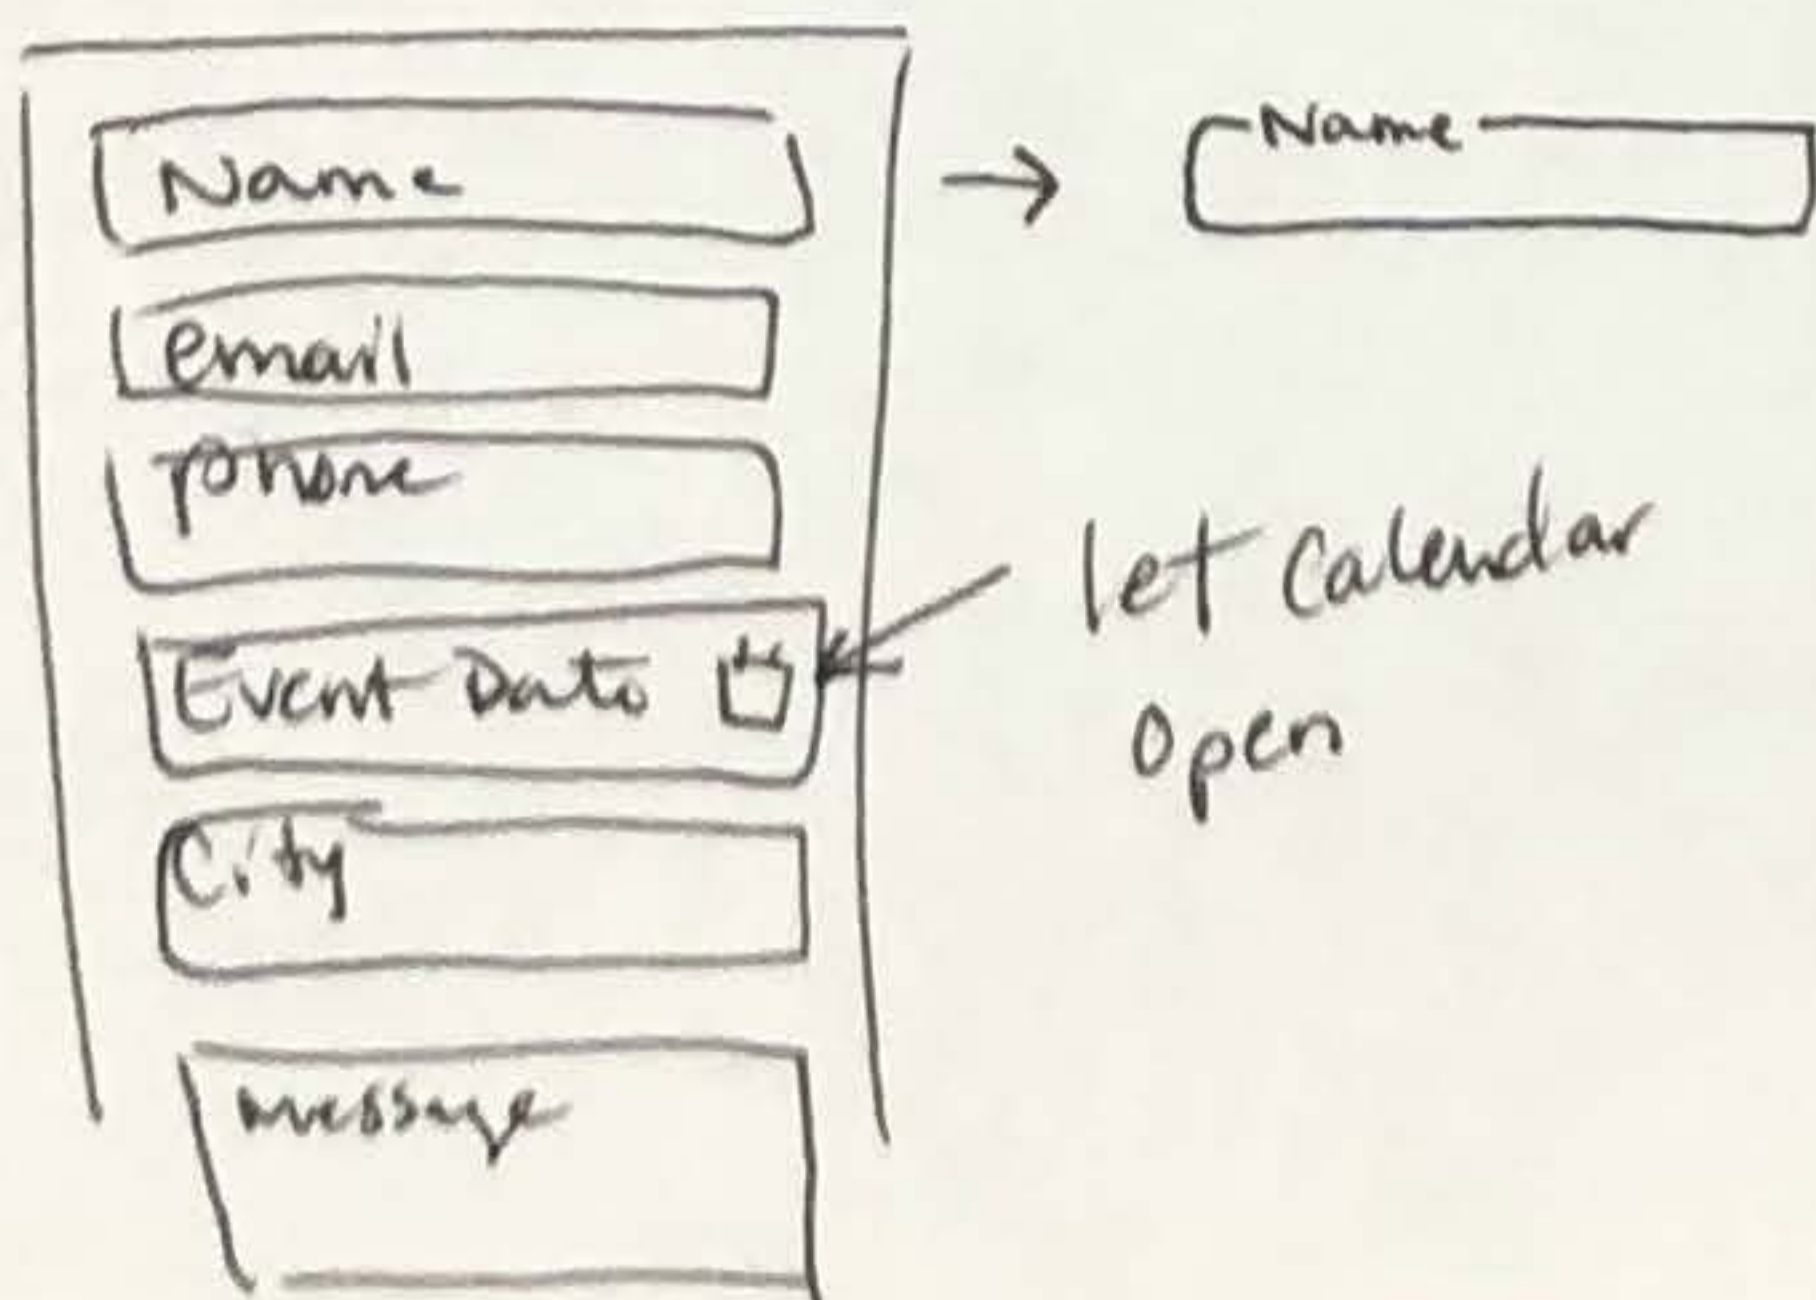 Name
Name
email
phone
Event Date
let Calendar
Open
City
message